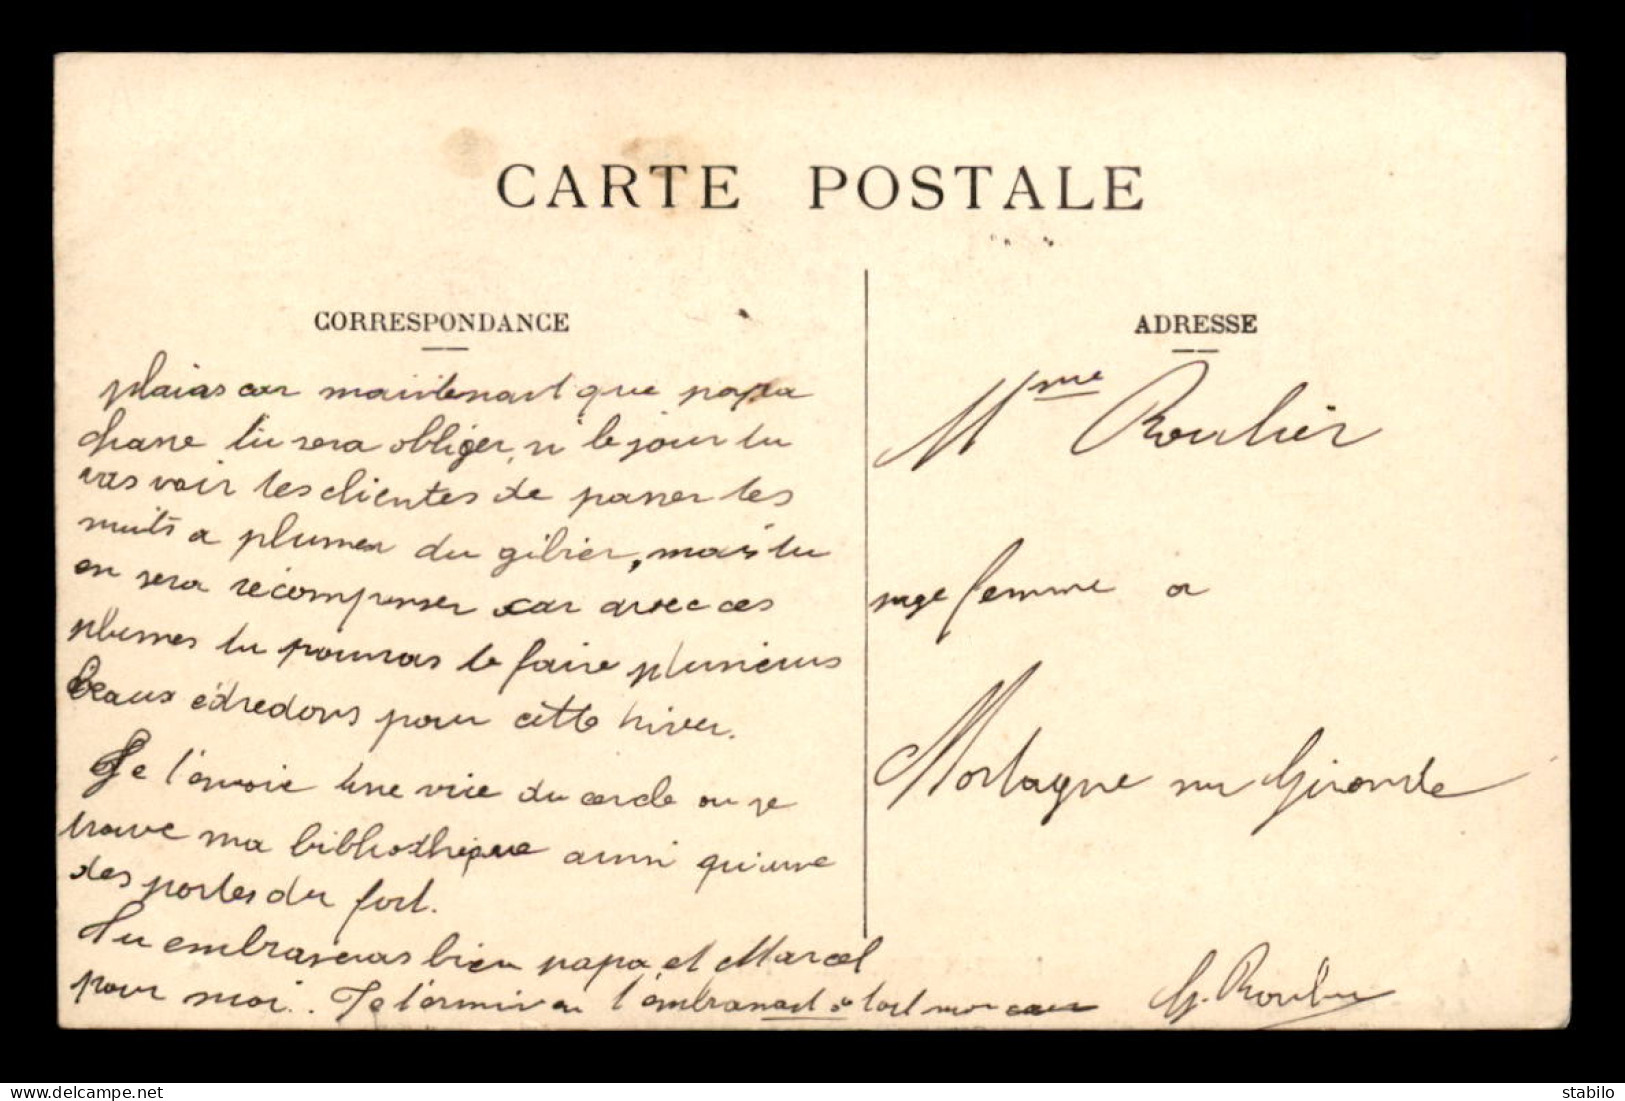 CARTE POSTALE
CORRESPONDANCE
plains car maintenant que papa
chasse tu sera obliger, si le jour tu
vas voir tes clientes de passer tes
nuits a plumer du gibier, mais tu
en sera récompenser car avec ces
plumes tu pourras te faire plusieurs
beaux édredons pour cette hiver.
Je t'envoie une vue du cercle ou se
trouve ma bibliothèque ainsi qu'une
des portes du fort.
Tu embrasseras bien papa et Marcel
pour moi.. Je termine en t'embrassant de tout mon cœur
G. Roulier
ADRESSE
Mme Roulier
sage femme a
Mortagne sur Gironde
stabilo